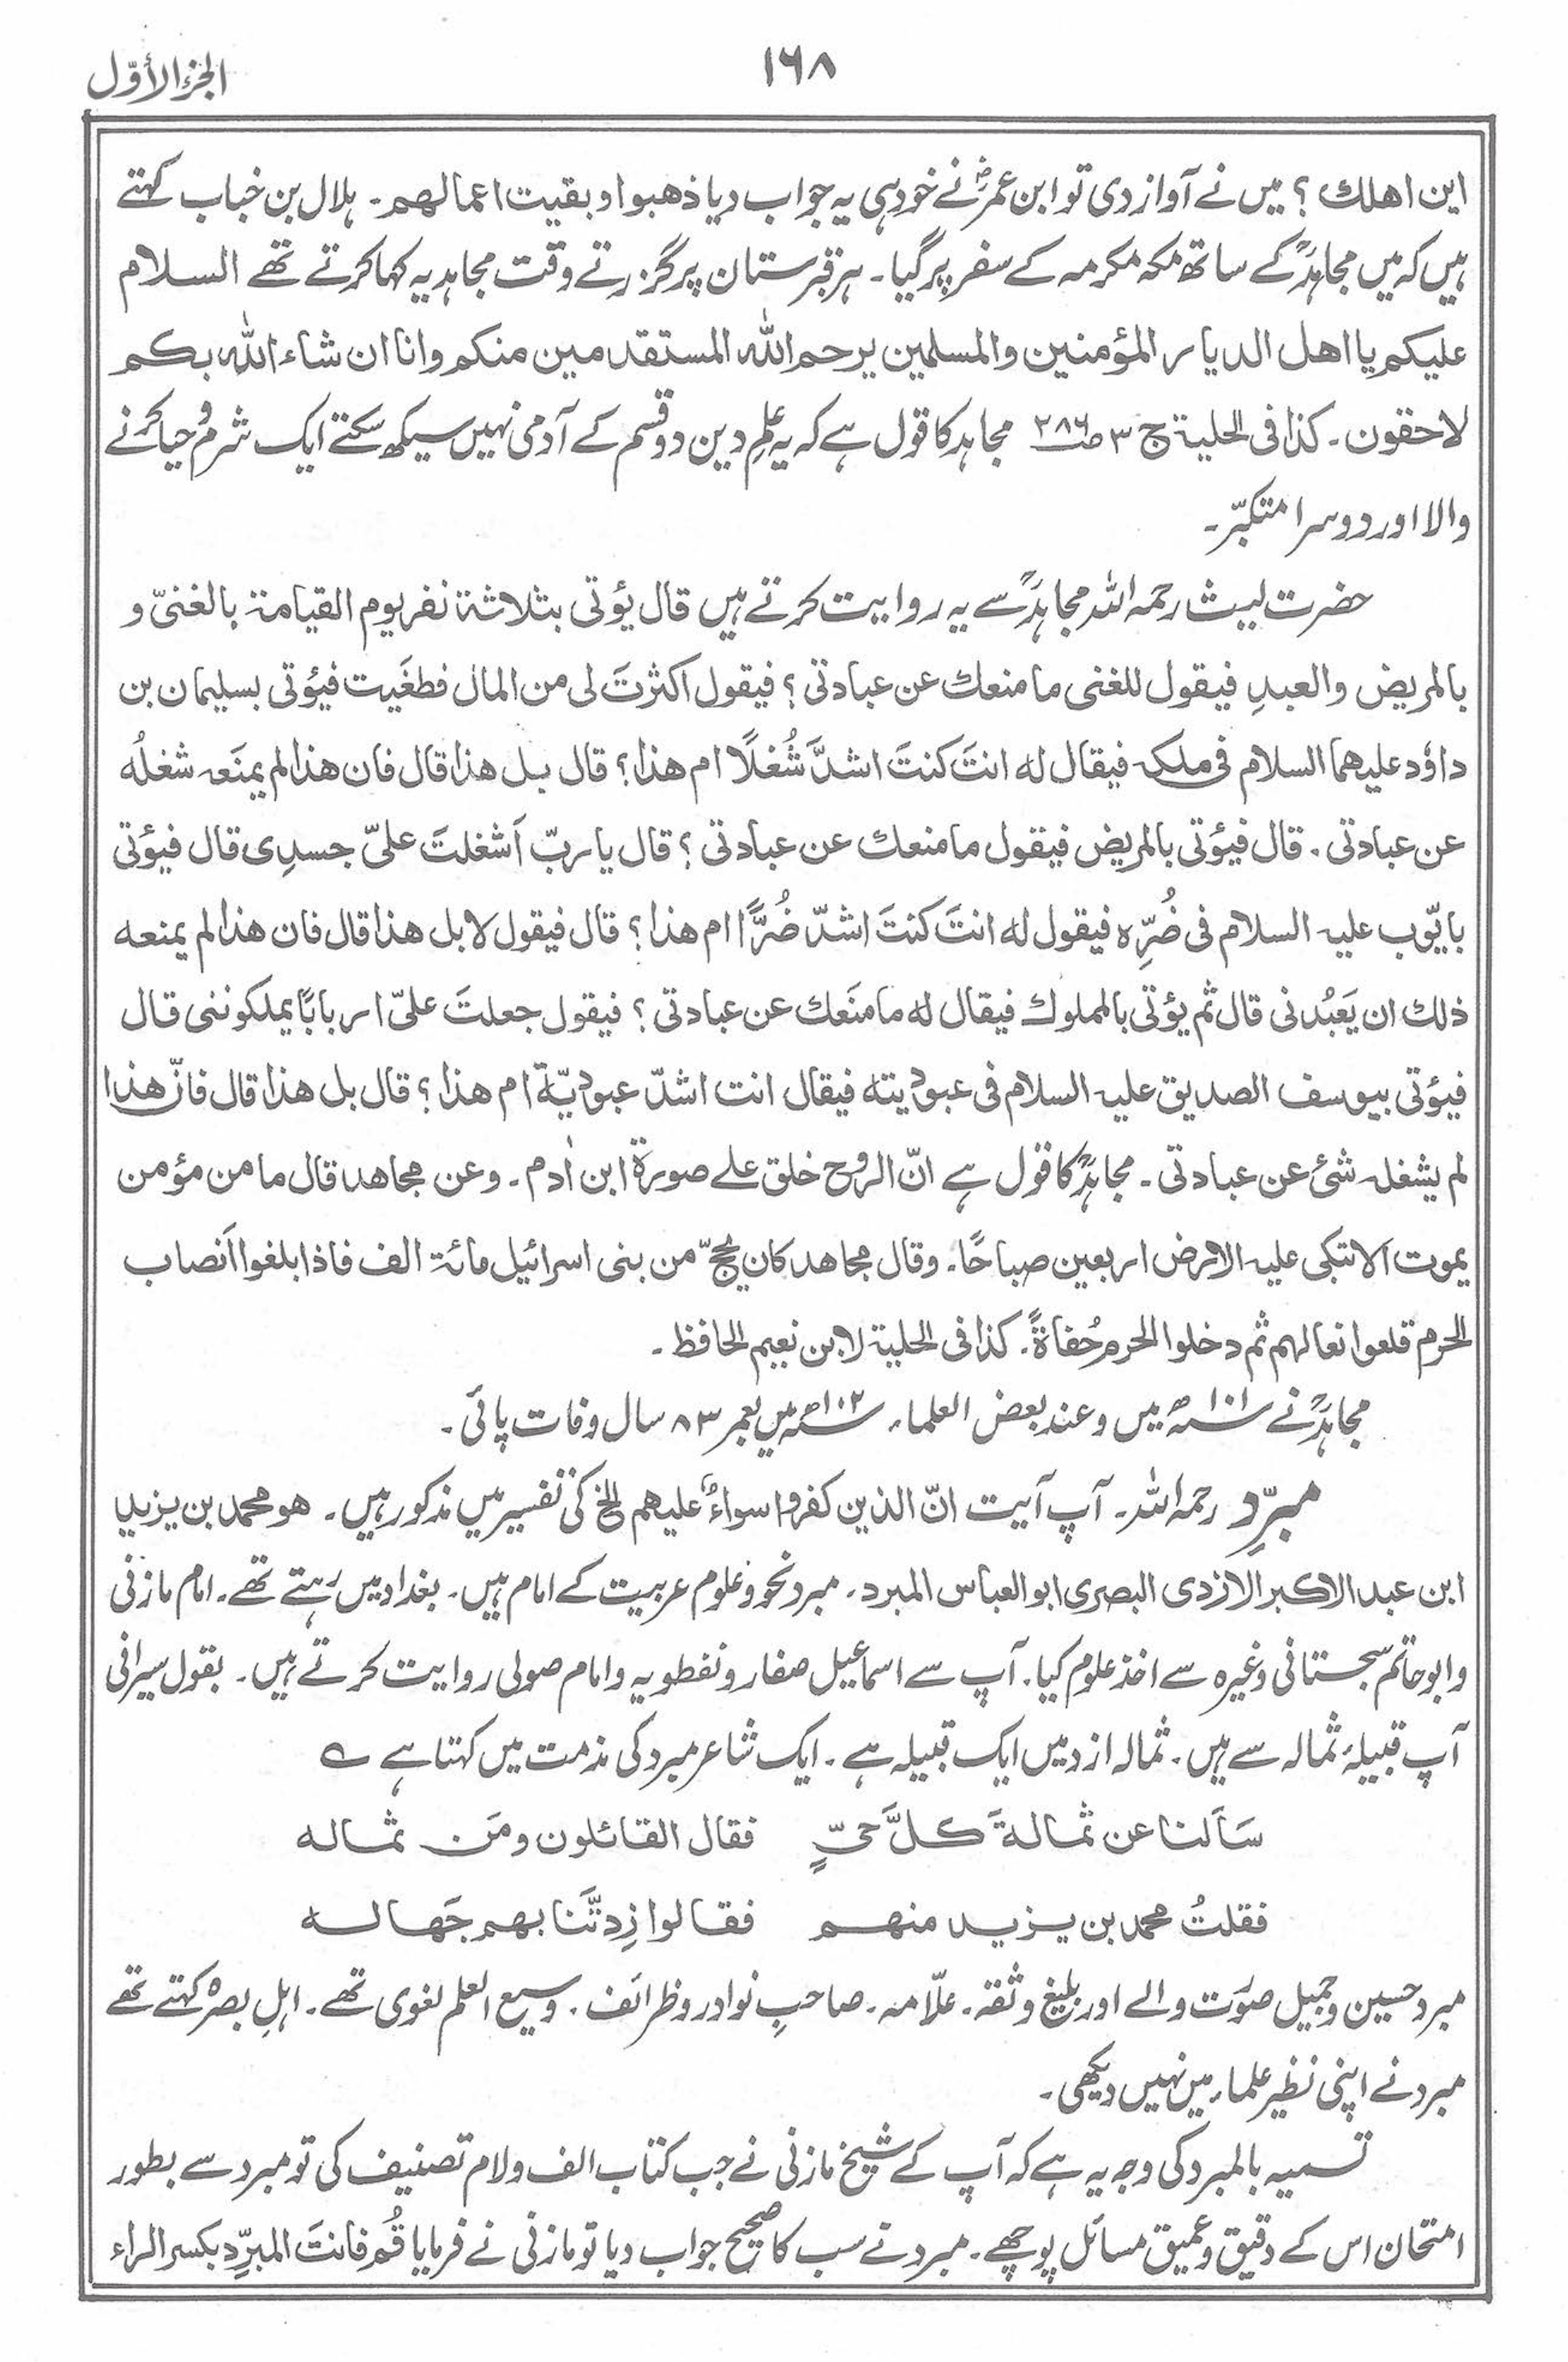 الجزء الأوّل
۱۶۸
این اهلك ؟ میں نے آواز دی تو ابن عمرؓ نے خود ہی یہ جواب دیا ذهبوا و بقیت اعمالهم۔ ہلال بن خباب کہتے
ہیں کہ میں مجاہدؒ کے ساتھ مکہ مکرمہ کے سفر پر گیا۔ ہر قبرستان پر گزرتے وقت مجاہد یہ کہا کرتے تھے السلام
علیکم یا اهل الدیار المؤمنین والمسلمین یرحم اللّٰه المستقدمین منکم وانا ان شاء اللّٰه بکم
لاحقون۔ کذا فی الحلیۃ ج ۳ ص۲۸۶ مجاہد کا قول ہے کہ یہ علمِ دین دو قسم کے آدمی نہیں سیکھ سکتے ایک شرم و حیا کرنے
والا اور دوسرا متکبّر۔
حضرت لیث رحمہ اللہ مجاہدؒ سے یہ روایت کرتے ہیں قال یؤتی بثلاثة نفر یوم القیامة بالغنیّ و
بالمریض والعبدِ فیقول للغنی ما منعك عن عبادتی ؟ فیقول اکثرتَ لی من المال فطغَیت فیؤتی بسلیمان بن
داؤد علیهما السلام فی ملکہ فیقال له انتَ کنتَ اشدَّ شُغلًا ام هذا؟ قال بل هذا قال فان هذا لم یمنَعہ شغلُه
عن عبادتی۔ قال فیؤتی بالمریض فیقول ما منعك عن عبادتی ؟ قال یا ربّ اَشغلتَ علیّ جسدِی قال فیؤتی
بایّوب علیہ السلام فی ضُرِّہ فیقول له انتَ کنتَ اشدّ ضُرًّا ام هذا؟ قال فیقول لا بل هذا قال فان هذا لم یمنعه
ذلك ان یَعبُدنی قال ثم یؤتی بالمملوك فیقال له ما منَعك عن عبادتی ؟ فیقول جعلتَ علیّ اربابًا یملکوننی قال
فیؤتی بیوسف الصدیق علیہ السلام فی عبودیته فیقال انت اشدّ عبودیّة ام هذا؟ قال بل هذا قال فانّ هذا
لم یشغلہ شئ عن عبادتی۔ مجاہدؒ کا قول ہے انّ الروح خلق علے صورة ابن اٰدم۔ وعن مجاهد قال ما من مؤمن
یموت اَلا تبکی علیہ الارض اربعین صباحًا۔ وقال مجاهد کان یحجّ من بنی اسرائیل مائۃ الف فاذا بلغوا اَنصاب
الحرم قلعوا نعالهم ثم دخلوا الحرم حُفاةً۔ کذا فی الحلیۃ لابن نعیم الحافظ۔
مجاہدؒ نے ۱۰۱ھ میں وعند بعض العلماء ۱۰۲ھ میں بعمر ۸۳ سال وفات پائی۔
مبرِّد رحمہ اللہ۔ آپ آیت انّ الذین کفروا سواءٌ علیهم الخ کی تفسیر میں مذکور ہیں۔ هو محمد بن یزید
ابن عبد الاکبر الازدی البصری ابو العباس المبرد۔ مبرد نحو و علوم عربیت کے امام ہیں۔ بغداد میں رہتے تھے۔ امام مازنی
و ابو حاتم سجستانی وغیرہ سے اخذ علوم کیا۔ آپ سے اسماعیل صفار و نفطویہ و امام صولی روایت کرتے ہیں۔ بقول سیرافی
آپ قبیلۂ ثمالہ سے ہیں۔ ثمالہ ازد میں ایک قبیلہ ہے۔ ایک شاعر مبرد کی مذمت میں کہتا ہے ؎
سَاَلنا عن ثمالةَ کلَّ حیٍّ فقال القائلون ومَن ثماله
فقلتُ محمد بن یزید منهم فقالوا زِدتَّنا بهم جَهاله
مبرد حسین و جمیل صوَرت والے اور بلیغ و ثقہ۔ علّامہ۔ صاحبِ نوادر و ظرائف۔ وسیع العلم لغوی تھے۔ اہلِ بصرہ کہتے تھے
مبرد نے اپنی نظیر علماء میں نہیں دیکھی۔
تسمیہ بالمبرد کی وجہ یہ ہے کہ آپ کے شیخ مازنی نے جب کتاب الف و لام تصنیف کی تو مبرد سے بطور
امتحان اس کے دقیق و عمیق مسائل پوچھے۔ مبرد نے سب کا صحیح جواب دیا تو مازنی نے فرمایا قُم فانتَ المبرِّد بکسر الراء